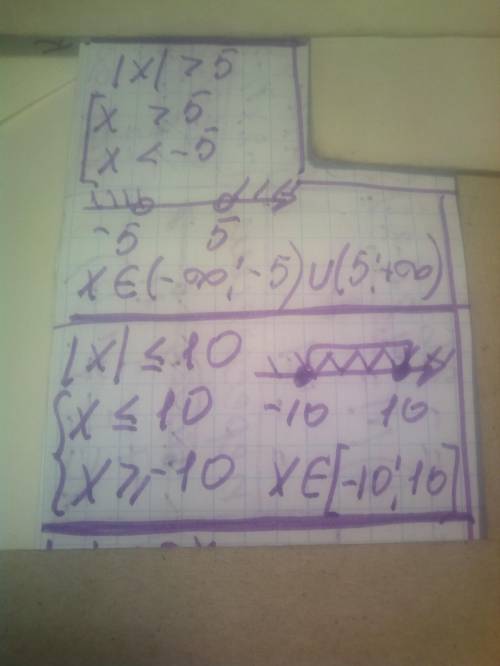 |x| > 5
[x > 5
x < -5
-5 5
x ∈ (-∞; -5) ∪ (5; +∞)
|x| ≤ 10
{x ≤ 10 -10 10
x ≥ -10 x ∈ [-10; 10]